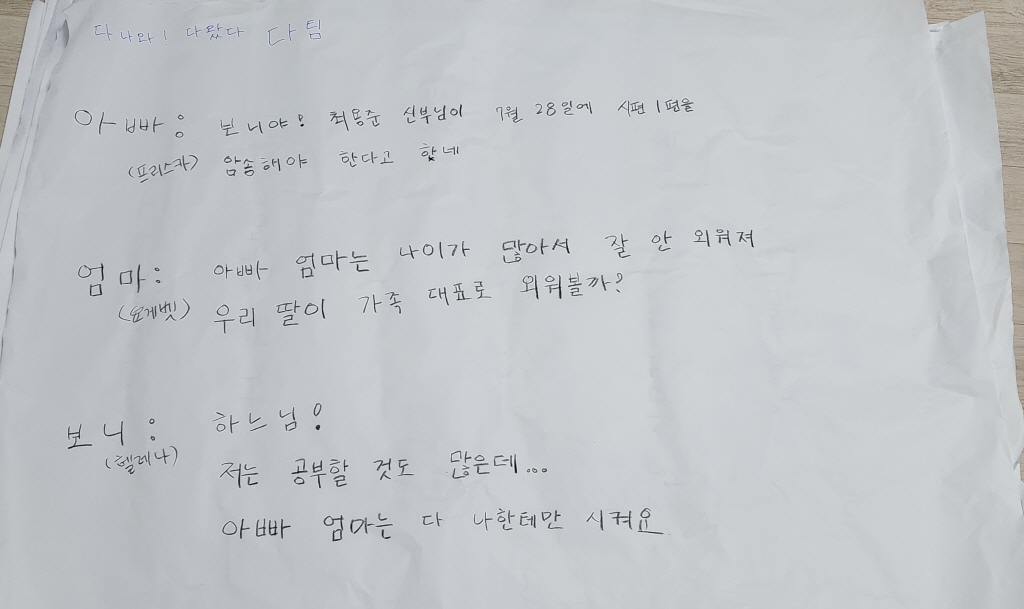 다나와! 다왔다 다팀
아빠: 보니야! 최용준 신부님이 7월 28일에 시편 1편을
(프리스카) 암송해야 한다고 핬네
엄마: 아빠 엄마는 나이가 많아서 잘 안 외워져
(요게벳) 우리 딸이 가족 대표로 외워볼까?
보니: 하느님!
(헬레나) 저는 공부할 것도 많은데...
아빠 엄마는 다 나한테만 시켜요